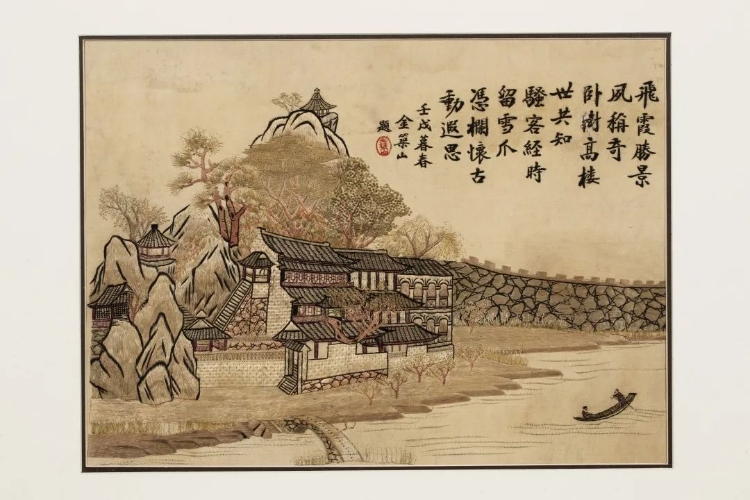 飛霞勝景
夙稱奇
卧樹高楼
世共知
騷客經時
留雪爪
憑欄懷古
動遐思
壬戌暮春
金築山
題